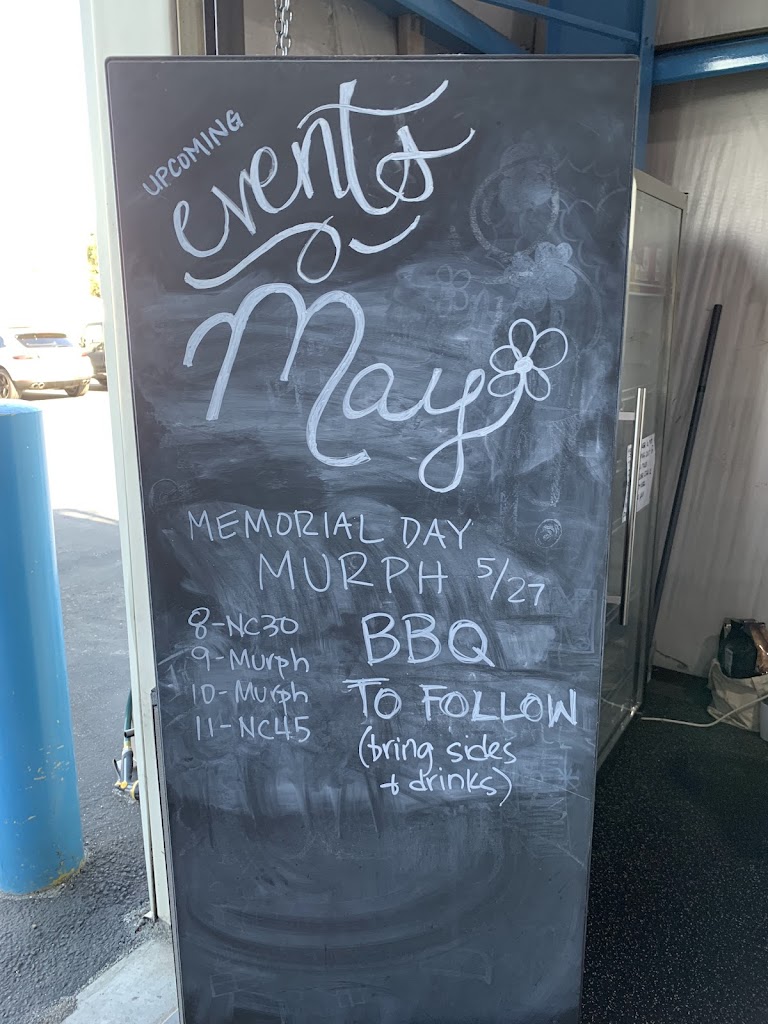 UPCOMING
events
May
MEMORIAL DAY
MURPH 5/27
8-NC30
9-Murph
10-Murph
11-NC45
BBQ
TO FOLLOW
(bring sides
+ drinks)